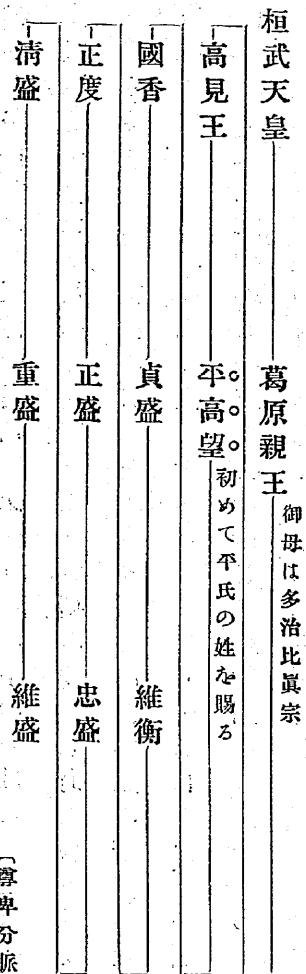 桓武天皇 葛原親王 御母は多治比眞宗
高見王 平高望 初めて平氏の姓を賜る
國香 貞盛 維衡
正度 正盛 忠盛
淸盛 重盛 維盛
〔尊卑分脈